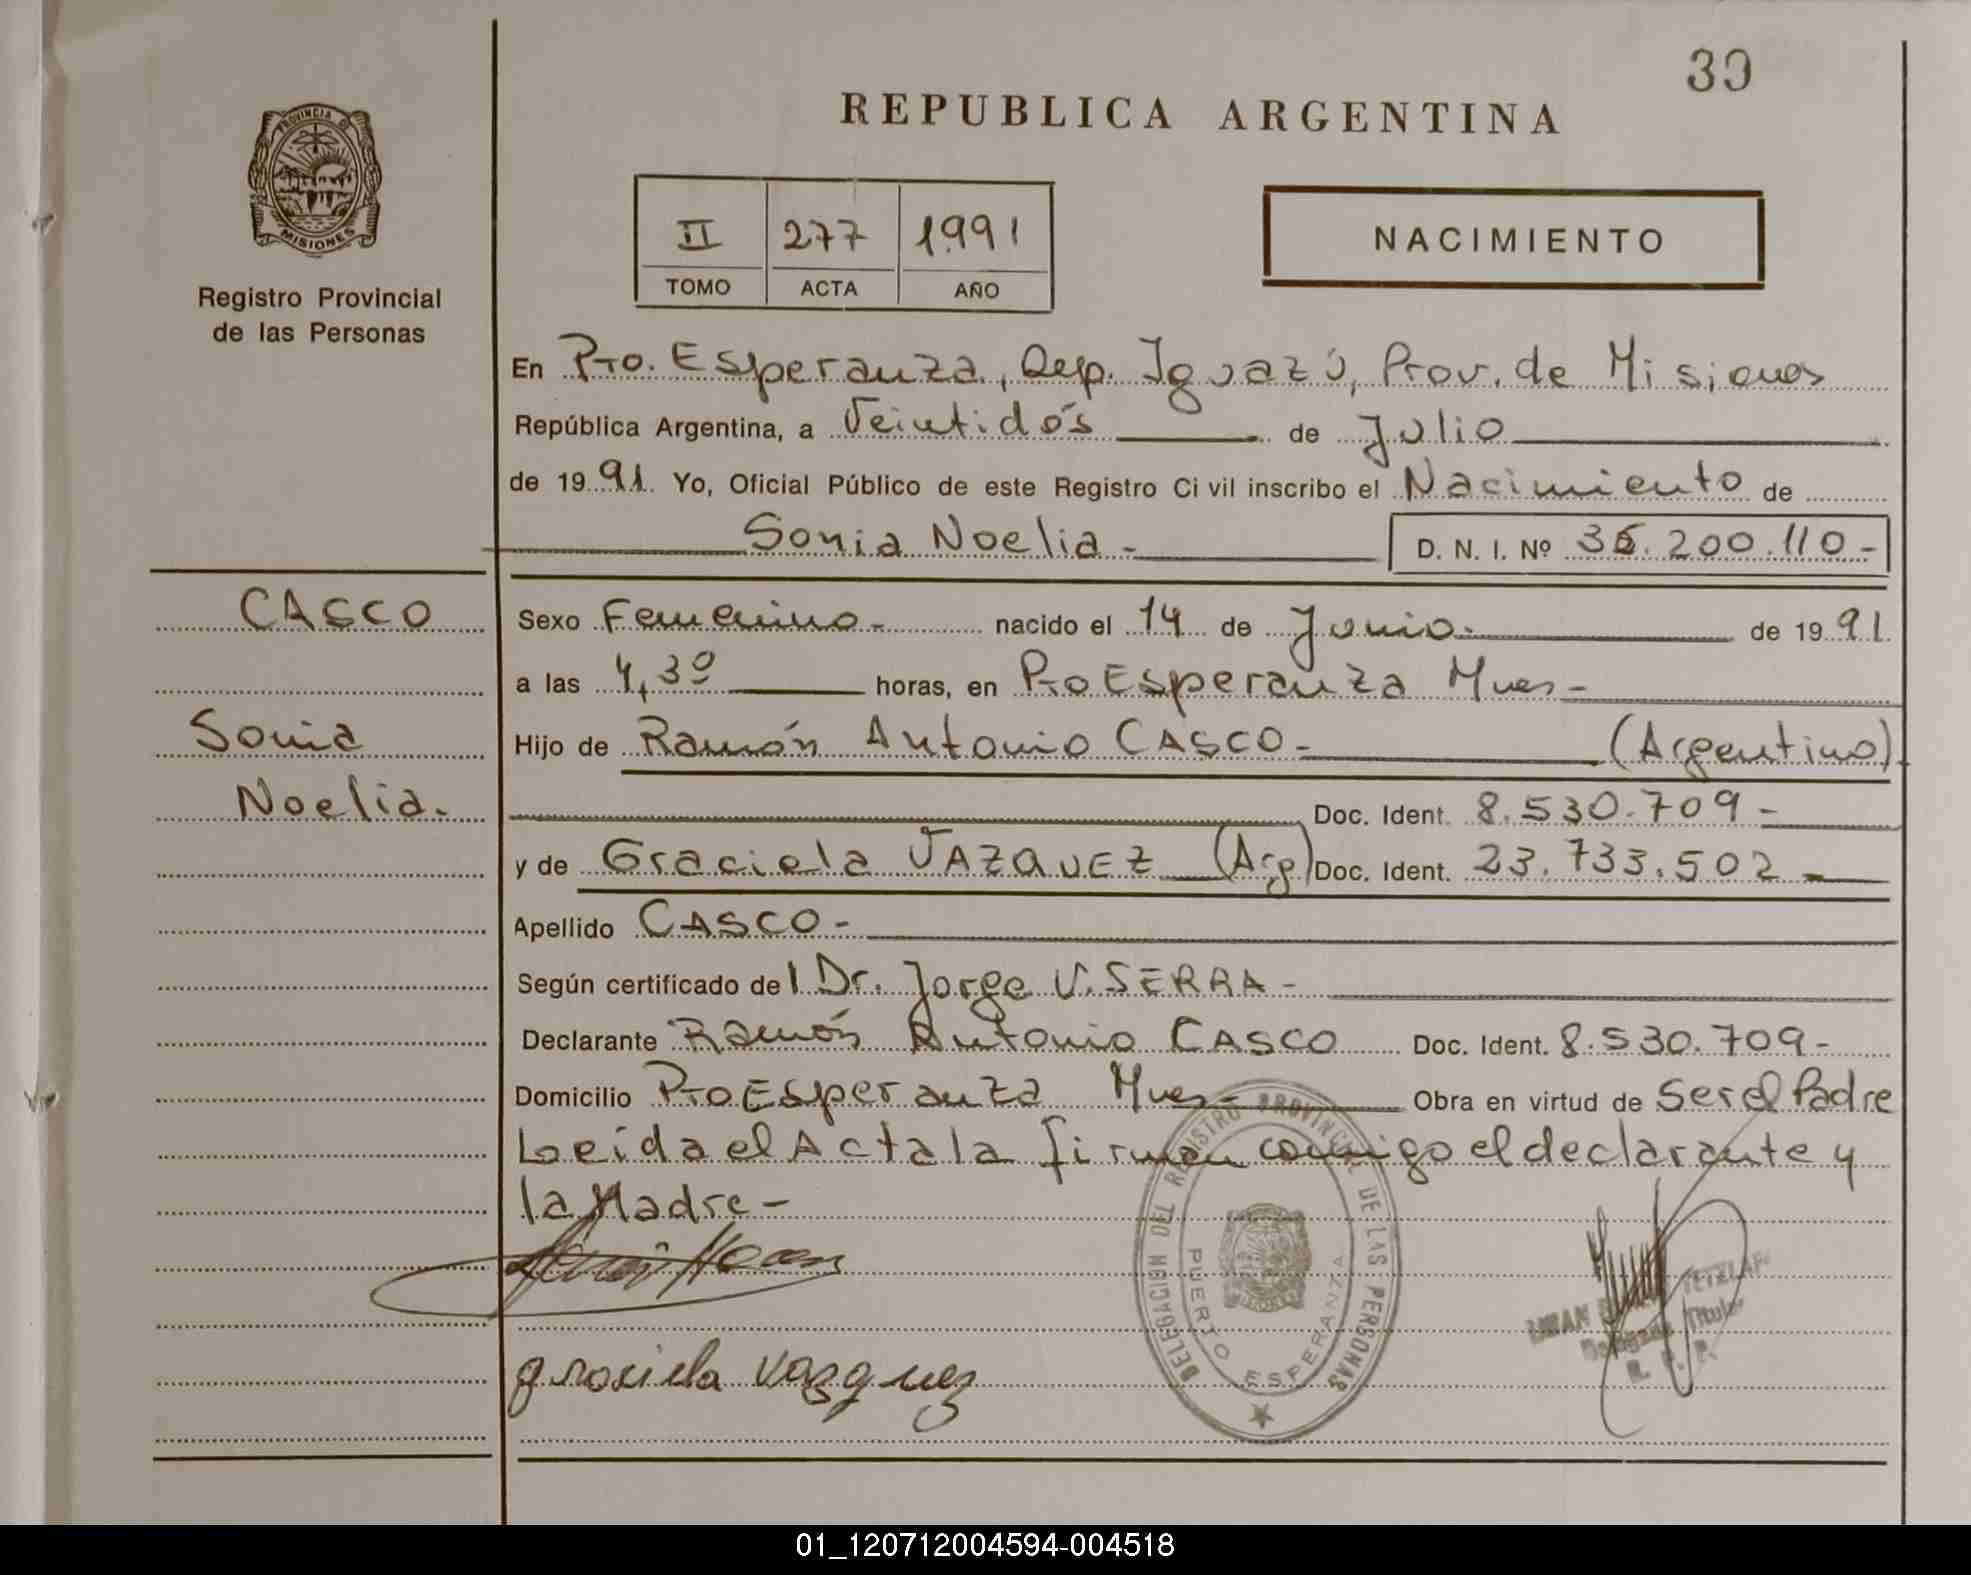 39
REPUBLICA ARGENTINA
PROVINCIA DE
MISIONES
Registro Provincial
de las Personas
II 277 1991
TOMO ACTA AÑO
NACIMIENTO
En Pto. Esperanza, Dep. Iguazú, Prov. de Misiones
República Argentina, a Veintidós de Julio
de 1991. Yo, Oficial Público de este Registro Civil inscribo el Nacimiento de
Sonia Noelia - D. N. I. Nº 36.200.110-
CASCO
Sonia
Noelia.
Sexo Femenino - nacido el 14 de Junio. de 1991
a las 4,30 horas, en Pto Esperanza Mnes -
Hijo de Ramón Antonio CASCO - (Argentino)
Doc. Ident. 8.530.709-
y de Graciela VAZQUEZ (Arg) Doc. Ident. 23.733.502-
Apellido CASCO -
Según certificado del Dr. Jorge V. SERRA -
Declarante Ramón Antonio CASCO Doc. Ident. 8.530.709-
Domicilio Pto Esperanza Mnes - Obra en virtud de Ser el Padre
Leida el Acta la firman conmigo el declarante y
la Madre -
graciela vazquez
DELEGACION DEL REGISTRO PROVINCIAL DE LAS PERSONAS
PUERTO ESPERANZA
Titular
01_120712004594-004518